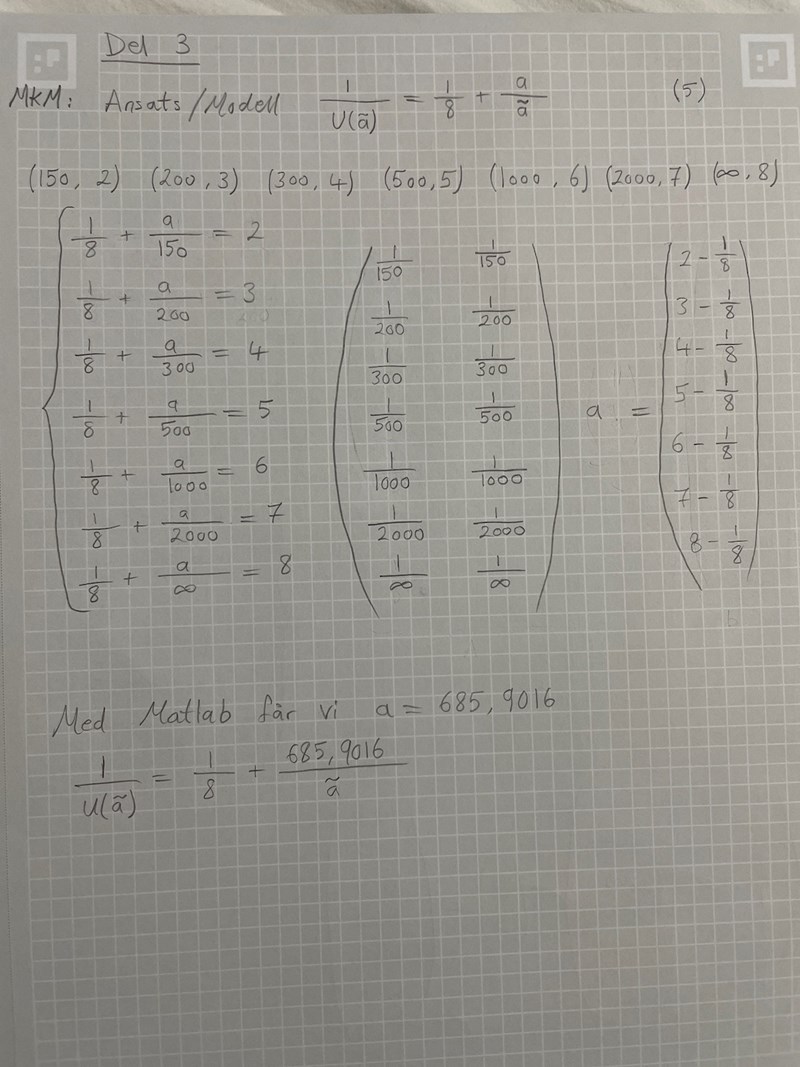 Del 3
MKM: Ansats/Modell 1/U(ã) = 1/8 + a/ã (5)
(150, 2) (200, 3) (300, 4) (500, 5) (1000, 6) (2000, 7) (∞, 8)
1/8 + a/150 = 2
1/8 + a/200 = 3
1/8 + a/300 = 4
1/8 + a/500 = 5
1/8 + a/1000 = 6
1/8 + a/2000 = 7
1/8 + a/∞ = 8
1/150 1/150
1/200 1/200
1/300 1/300
1/500 1/500
1/1000 1/1000
1/2000 1/2000
1/∞ 1/∞
a =
2 - 1/8
3 - 1/8
4 - 1/8
5 - 1/8
6 - 1/8
7 - 1/8
8 - 1/8
Med Matlab får vi a = 685,9016
1/U(ã) = 1/8 + 685,9016/ã